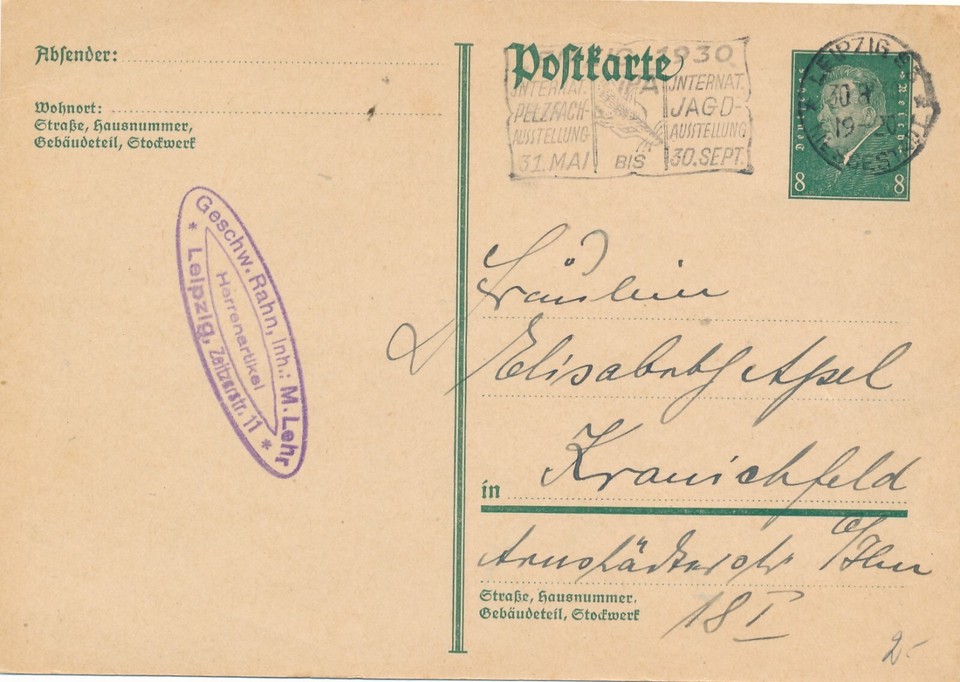 Absender:
Wohnort:
Straße, Hausnummer,
Gebäudeteil, Stockwerk
Geschw. Rahn, Inh.: M. Lehr
Herrenartikel
* Leipzig, Zeitzerstr. 11 *
Postkarte
1930
INTERNAT. IPA INTERNAT.
PELZFACH- JAGD-
AUSSTELLUNG AUSSTELLUNG
31. MAI BIS 30. SEPT.
LEIPZIG
30 8
19-20
MESSESTADT
Deutsches Reich
8 8
Fräulein
Elisabeth Apel
in Kranichfeld
Arnstädterstr a/Ilm
Straße, Hausnummer,
Gebäudeteil, Stockwerk
18 I
2.-